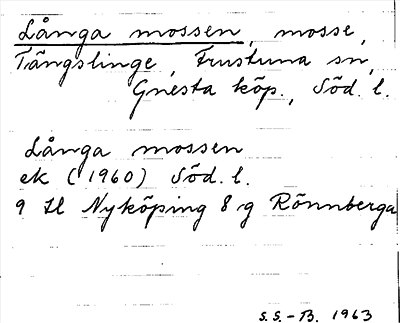 Långa mossen, mosse,
Tängslinge, Frustuna sn,
Gnesta köp., Söd. l.
Långa mossen
ek (1960) Söd. l.
9 H Nyköping 8 g Rönnberga
S.S.-B. 1963